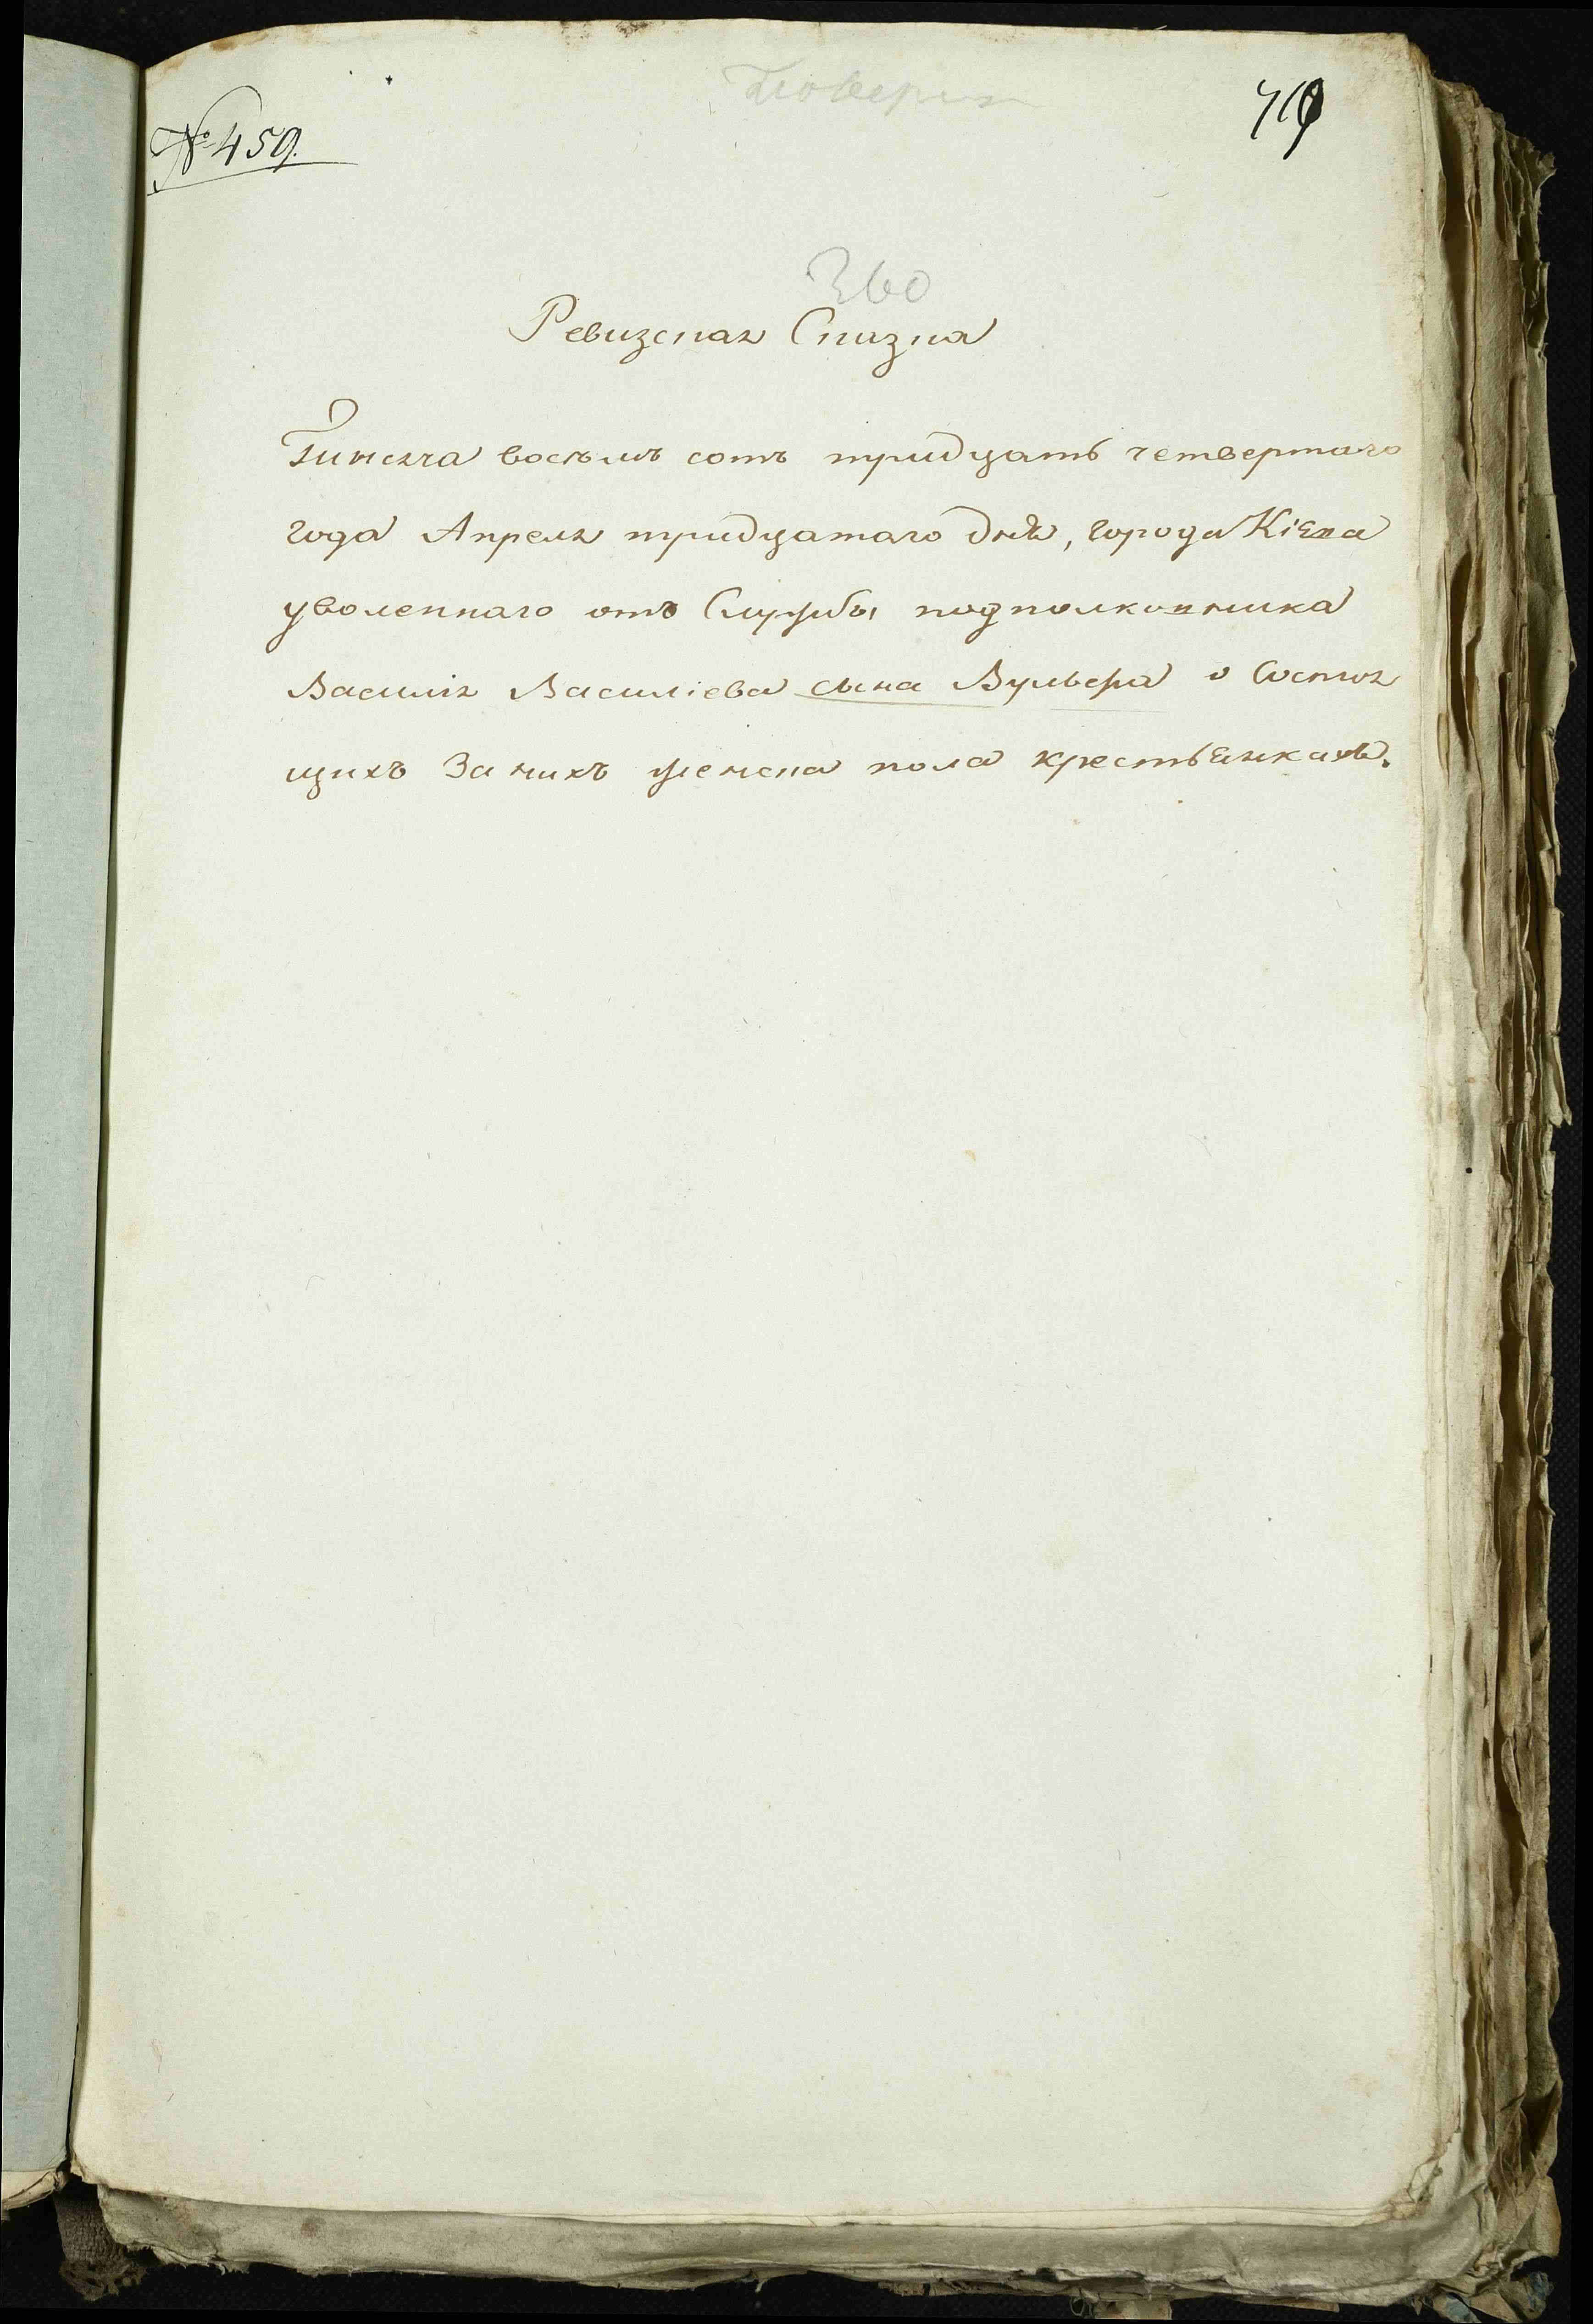 № 459.
719
360
Ревизская Сказка
Тисяча восемъ сотъ тридцать четвертаго
года Апреля тридцатаго дня, города Кіева
уволеннаго отъ Службы подполковника
Василія Василіева сына Вульфера о Состоя
щихъ За нихъ женска пола крестьянкахъ.